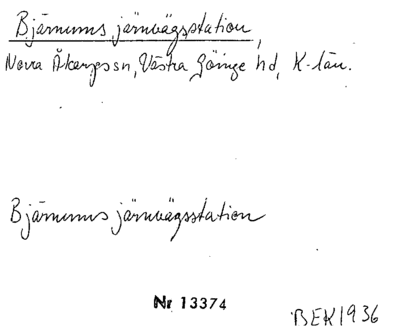 Bjärnums järnvägsstation,
Norra Åkarps sn, Västra Göinge hd, K-län.
Bjärnums järnvägsstation
Nr 13374
BEK1936